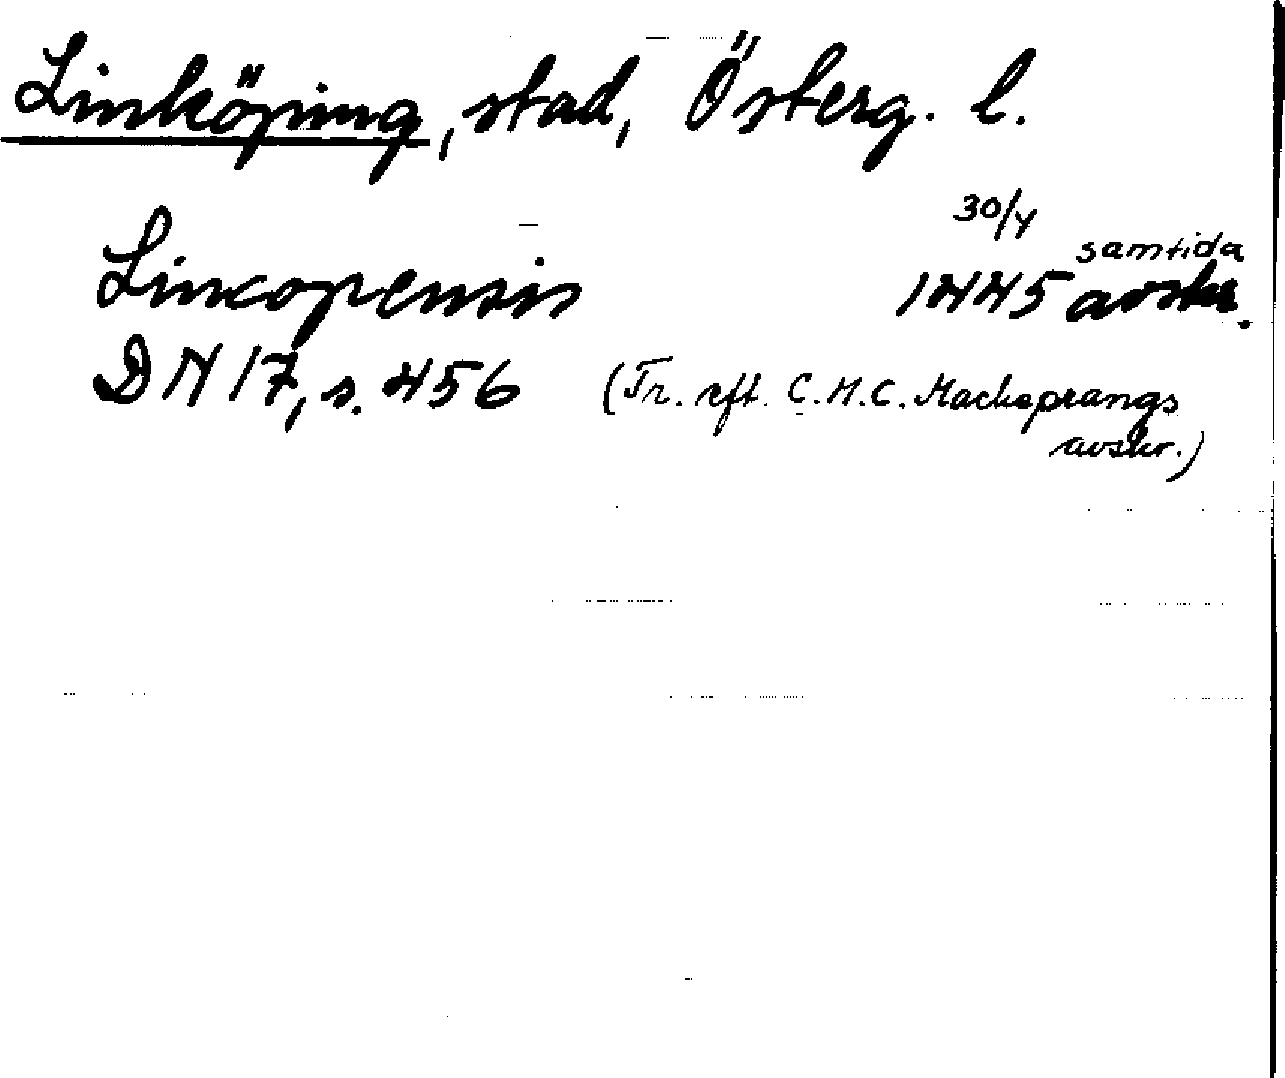 Linköping, stad, Österg. l.
30/4
Lincopensis 1445 samtida avskr.
DN 17, s. 456 (Tr. eft. C.M.C. Mackeprangs
avskr.)